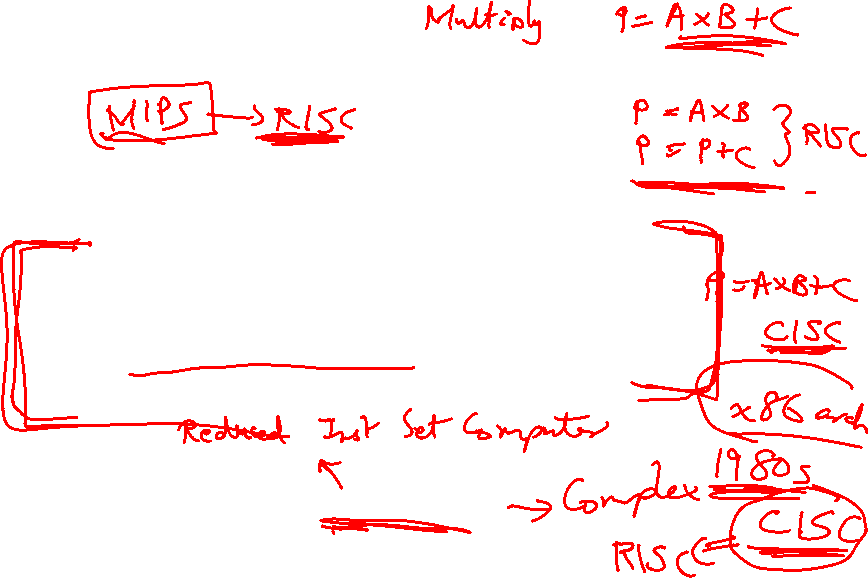 Multiply P = A × B + C
MIPS → RISC
P = A × B
P = P + C } RISC
P = A × B + C
CISC
x86 arch
Reduced Inst Set Computer
1980s
→ Complex
CISC
RISC ⇐